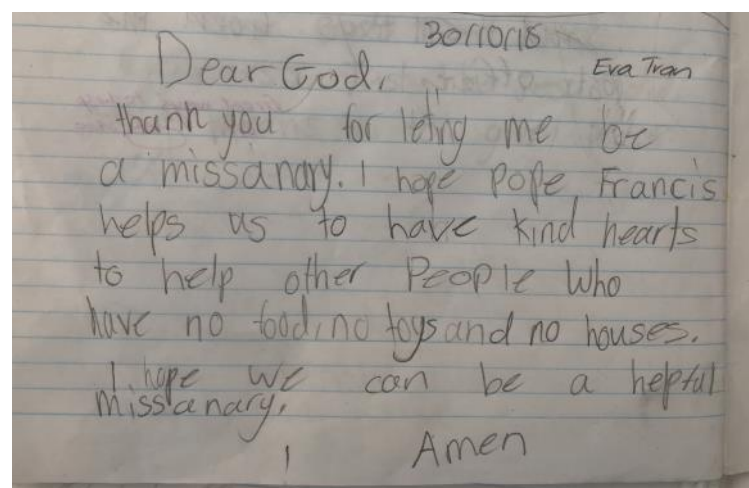 30/10/18
Eva Tran
Dear God,
thank you for leting me be
a missanary. I hope Pope Francis
helps us to have kind hearts
to help other People who
have no food, no toys and no houses.
I hope we can be a helpful
missanary.
Amen